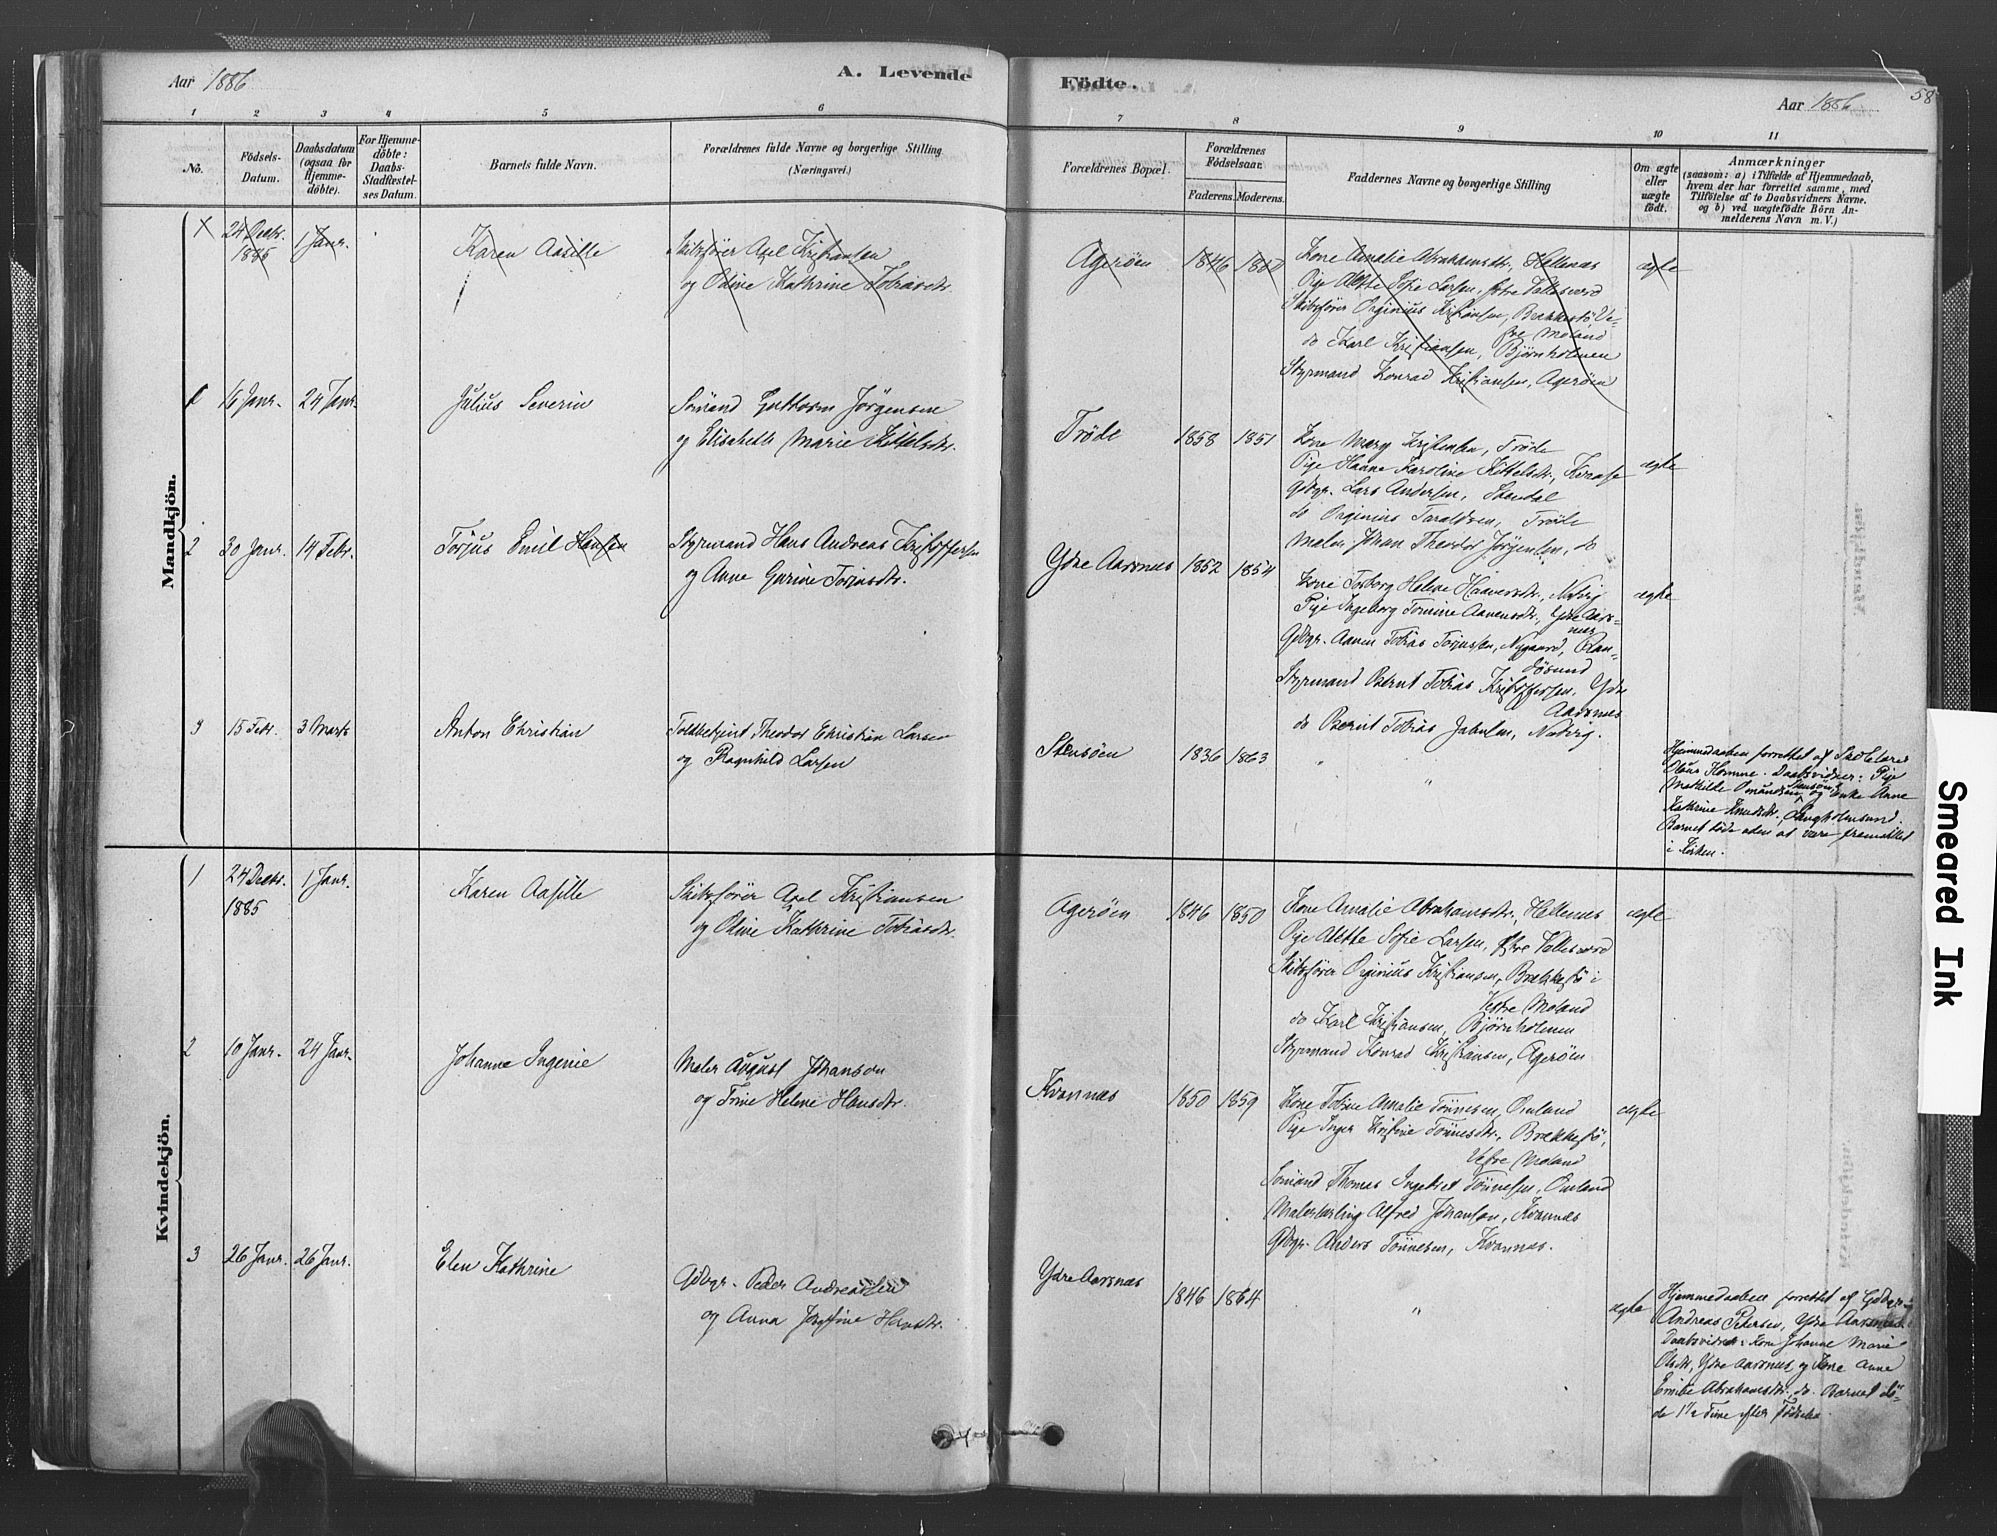 Aar 1886
A. Levende
Födte.
Aar 1886
58
1 2 3 4 5 6 7 8 9 10 11
No.
Födsels-Datum.
Daabsdatum (ogsaa for Hjemme-döbte).
For Hjemme-döbte: Daabs-Stadfæstel-ses Datum.
Barnets fulde Navn.
Forældrenes fulde Navne og borgerlige Stilling
(Næringsvei.)
Forældrenes Bopæl.
Forældrenes Födselsaar.
Faderens. Moderens.
Faddernes Navne og borgerlige Stilling
Om ægte eller uægte födt.
Anmærkninger
(saasom: a) i Tilfælde af Hjemmedaab,
hvem der har forrettet samme, med
Tilföielse af to Daabsvidners Navne.
og b) ved uægtefödte Börn An-
melderens Navn m. V.)
Mandkjön.
24 Decbr. 1885
1 Janr.
Karen Aasille
Skibsfører Axel Kristiansen
og Olive Kathrine Tobiasdtr.
Agerøen
1846 1850
Kone Amalie Abrahamsdtr., Hellenes
Pige Alette Sofie Larsen, Østre Vallesverd
Skibsfører Orginius Kristiansen, Brækkestø Ve-
stre Moland
do Karl Kristiansen, Bjørnholmen
Styrmand Konrad Kristiansen, Agerøen
ægte
1
16 Janr.
24 Janr.
Julius Severin
Sømand Guttorm Jørgensen
og Elisabeth Marie Kittelsdtr.
Trøde
1858 1851
Kone Mary Kristensen, Trøde
Pige Hanne Karoline Kittelsdtr.,
Gdbgr. Lars Andersen,
do Orginius Taraldsen, Trøde
Maler Johan Theodor Jørgensen, do
ægte
2
30 Janr.
14 Febr.
Torjus Emil Hansen
Styrmand Hans Andreas Kristoffersen
og Anne Gurine Torjusdtr.
Ydre Aarsnes
1852 1854
Kone Torborg Helene Haaversdtr., Natvig
Pige Ingeborg Tomine Aanensdtr., Ydre Aars-
nes
Gdbgr. Aanen Tobias Torjussen, Nygaard, Ran-
døsund
Styrmand Bernt Tobias Kristoffersen, Ydre
Aarsnes
do Bernt Tobias Natvig.
ægte
3
15 Febr.
3 Marts
Anton Christian
Toldbetjent Theodor Christian Larsen
og Ragnhild Larsen
Stensøen
1836 1863
"
"
Hjemmedaaben forrettet af
Olaus Homme. Daabsvidner: Pige
Mathilde Omundsen Stensøen og Enke Anne
Kathrine Knudsdtr., Langholmsund.
Barnet døde uden at være fremstillet
i Kirken.
Kvindekjön.
1
24 Decbr. 1885
1 Janr.
Karen Aasille
Skibsfører Axel Kristiansen
og Olive Kathrine Tobiasdtr.
Agerøen
1846 1850
Kone Amalie Abrahamsdtr., Hellenes
Pige Alette Sofie Larsen, Østre Vallesverd
Skibsfører Orginius Kristiansen, Brækkestø i
Vestre Moland
do Karl Kristiansen, Bjørnholmen
Styrmand Konrad Kristiansen, Agerøen
ægte
2
10 Janr.
24 Janr.
Johanne Ingenie
Maler August Johanson
og Trine Helene Hansdtr.
Kvannes
1850 1859
Kone Tobine Amalie Tönnesen, Omland
Pige Inger Kristine Tönnesdtr., Brækkestø,
Vestre Moland
Sømand Thomas Ingebret Tönnesen, Omland
Malerlærling Alfred Johanson, Kvannes
Gdbgr. Anders Tönnesen, Kvannes.
ægte
3
26 Janr.
26 Janr.
Elen Kathrine
Gdbgr. Peder Andreassen
og Anna Josefine Hansdtr.
Ydre Aarsnes
1846 1864
"
ægte
Hjemmedaaben forrettet af Gdbgr.
Andreas Petersen, Ydre Aarsnes.
Daabsvidner: Kone Johanne Marie
Olsdtr., Ydre Aarsnes, og Kone Anne
Emilie Abrahamsdtr., do. Barnet dø-
de 1½ Time efter Fødselen.
Smeared Ink